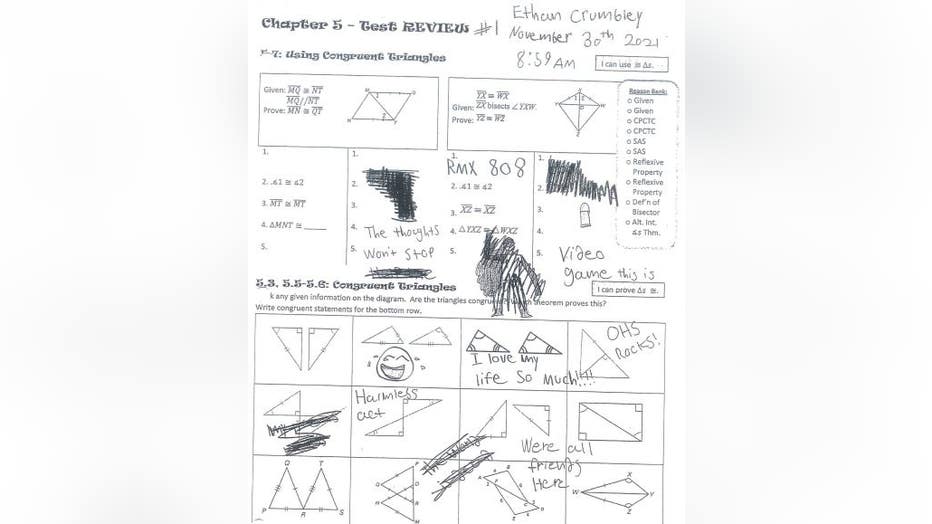 Ethan Crumbley
Chapter 5 – Test REVIEW #1
November 30th 2021
8:59 AM
5-7: Using Congruent Triangles
I can use ≅ Δs.
Given: MQ ≅ NT
MQ//NT
Prove: MN ≅ QT
YX ≅ WX
Given: ZX bisects ∠YXW.
Prove: YZ ≅ WZ
Reason Bank:
o Given
o Given
o CPCTC
o CPCTC
o SAS
o SAS
o Reflexive
Property
o Reflexive
Property
o Def'n of
Bisector
o Alt. Int.
∡s Thm.
1.
2. ∡1 ≅ ∡2
3. MT ≅ MT
4. ΔMNT ≅ ____
5.
1.
2.
3.
4. The thoughts
5. Won't stop
1.
RMX 808
2. ∡1 ≅ ∡2
3. XZ ≅ XZ
4. ΔYXZ ≅ ΔWXZ
5.
1.
2.
3.
4.
5. Video
game this is
5.3, 5.5-5.6: Congruent Triangles
I can prove Δs ≅.
k any given information on the diagram. Are the triangles congruent? theorem proves this?
Write congruent statements for the bottom row.
I love my
life So Much!!!!
OHS
Rocks!
Harmless
act
Were all
friends
Here
Q T
P R S
W X Y Z